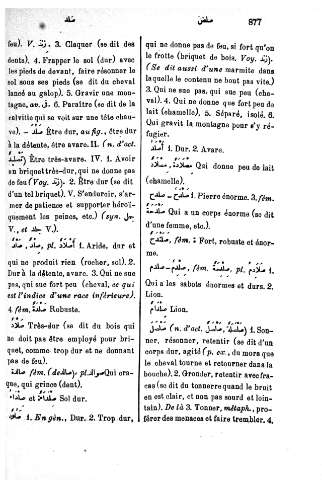 صلد
صلض
877
feu). V. زند. 3. Claquer (se dit des
dents). 4. Frapper le sol (dur) avec
les pieds de devant, faire résonner le
sol sous ses pieds (se dit du cheval
lancé au galop). 5. Gravir une mont-
agne, av. فى. 6. Paraître (se dit de la
calvitie qui se voit sur une tête chau-
ve). — صلد Être dur, au fig., être dur
à la détente, être avare. II. (n. d'act.
Être très-avare. IV. 1. Avoir
un briquet très-dur, qui ne donne pas
de feu (Voy. زند). 2. Être dur (se dit
d'un tel briquet). V. S'endurcir, s'ar-
mer de patience et supporter héroï-
quement les peines, etc.) (syn.
V., et جلد V.
صلد, pl. أصلاد 1. Aride, dur et
qui ne produit rien (rocher, sol). 2.
Dur à la détente, avare. 3. Qui ne sue
pas, qui sue fort peu (cheval, ce qui
est l'indice d'une race inférieure).
4 fém. صلدة Robuste.
Très-dur (se dit du bois qui
ne doit pas être employé pour bri-
quet, comme trop dur et ne donnant
pas de feu).
fém. pl. Qui cra-
que, qui grince (dent).
et Sol dur.
1. En gén., Dur. 2. Trop dur,
qui ne donne pas de feu, si fort qu'on
le frotte (briquet de bois. Voy. زند).
(Se dit aussi d'une marmite dans
laquelle le contenu ne bout pas vite.)
3. Qui ne sue pas, qui sue peu (che-
val). 4. Qui ne donne que fort peu de
lait (chamelle). 5. Séparé, isolé. 6.
Qui gravit la montagne pour s'y ré-
fugier.
أصلد 1. Dur. 2. Avare.
Qui donne peu de lait
(chamelle).
صلدح — 1. Pierre énorme. 3. fém.
صلدحة Qui a un corps énorme (se dit
d'une femme).
fém. ة Fort, robuste et énor-
me.
صلدم — صلدم, fém. صلدمة, pl. صلادم 1.
Qui a les sabots énormes et durs. 2.
Lion.
صلدام Lion.
صلصل (n. d'act. صلصلة) 1. Son-
ner, résonner, retentir (se dit d'un
corps dur, agité (p. ex., du mors que
le cheval tourne et retourner dans la
bouche). 2. Gronder, retentir avec fra-
cas (se dit du tonnerre quand le bruit
en est clair, et non pas sourd et loin-
tain). De là 3. Tonner, métaph., pro-
férer des menaces et faire trembler. 4.